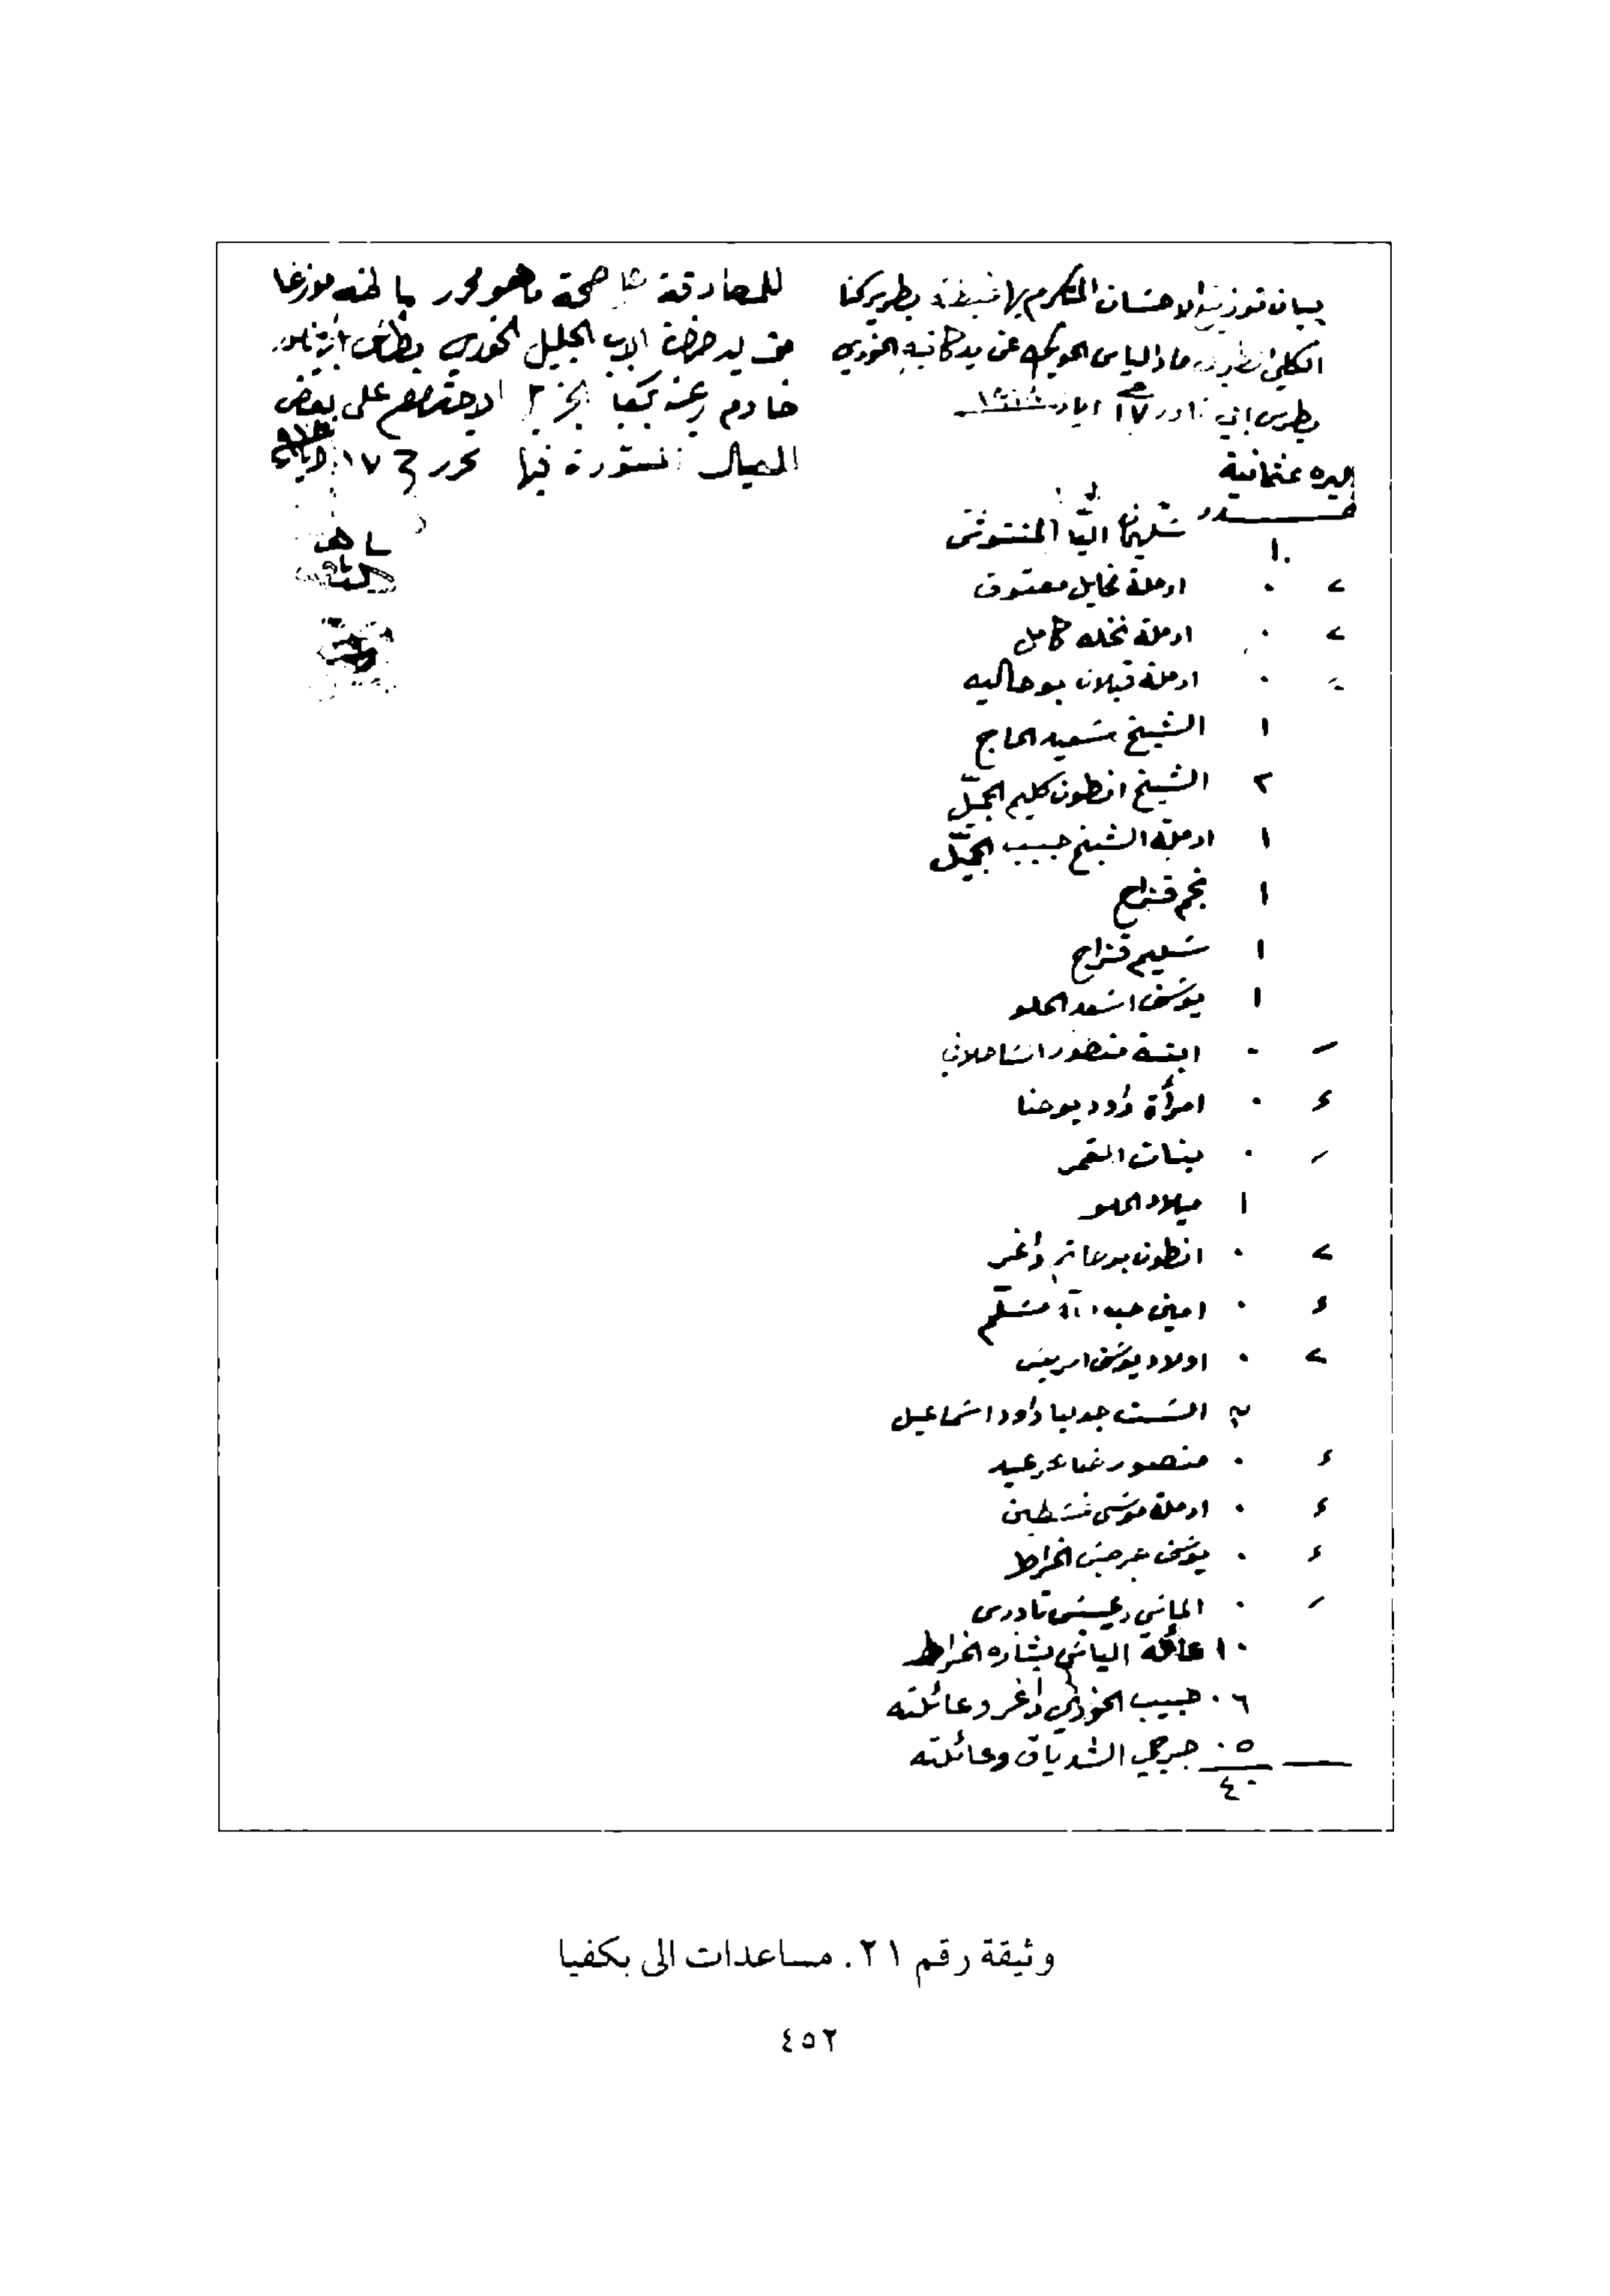 بيان توزيع الاحسان المتكرم بها غبطة بطريركنا
الكلي الطوبى مار الياس الحويك عن يد كاتبه الخوري
بطرس ابي نادر ١٧ ايار
للمصادقة على صحة ما هو محرر بالمنه موزعا
من يد حضرة الاب الجليل الخوري بطرس ابي نادر
خادم رعية بكفيا الجزيل الاحترام على بعض
العيال المستورة فيها تحرر في ١٧ ايار
ليره عثمانية
عدد
١٠
٠ ارملة نخايل معتوق
٠ ارملة نخله كامل
٠ ارملة قبلان بو حاليه
١ الشيخ سعيد الحاج
٢ الشيخ انطون كليم الجميّل
١ ارملة الشيخ حبيب الجميّل
١ نجم قزاح
١ سليم قزاح
١ يوسف اسعد الحلو
٠ ابنة منصور الساحلاني
٠ امرأة داود يوحنا
٠ بنات القمر
١ ميلاد الحلو
٠ انطون داغر
٠ امين عبد الله مسلّم
٠ اولاد يوسف
الست جدليا داود اسماعيل
٠ منصور عيد
٠ ارملة موسى
٠ يوسف الخراط
٠
١٠ عائلة الياس بشاره الخراط
٠٦ حبيب الخوري داغر وعائلته
٠٥ جرجي الشدياق وعائلته
٤٠
وثيقة رقم ٢١. مساعدات الى بكفيا
٤٥٢